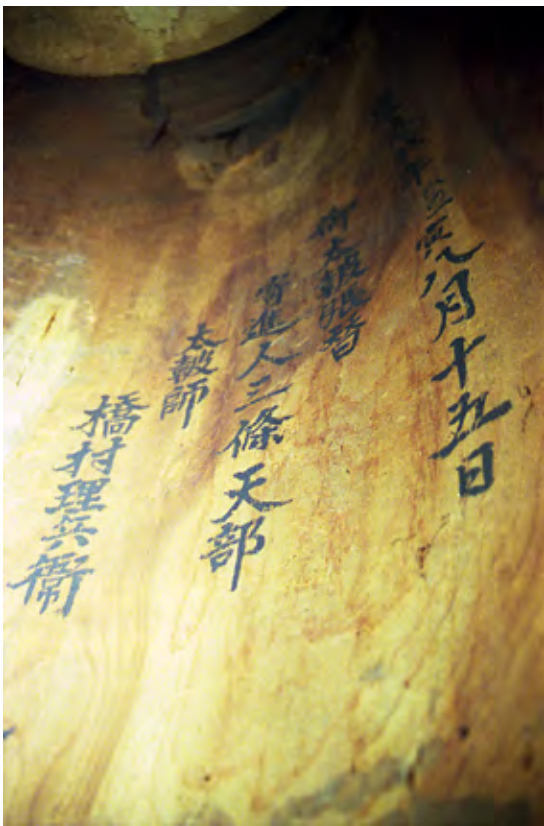 八月十五日
御太鼓張替
寄進人三條天部
太皷師
橋村理兵衛